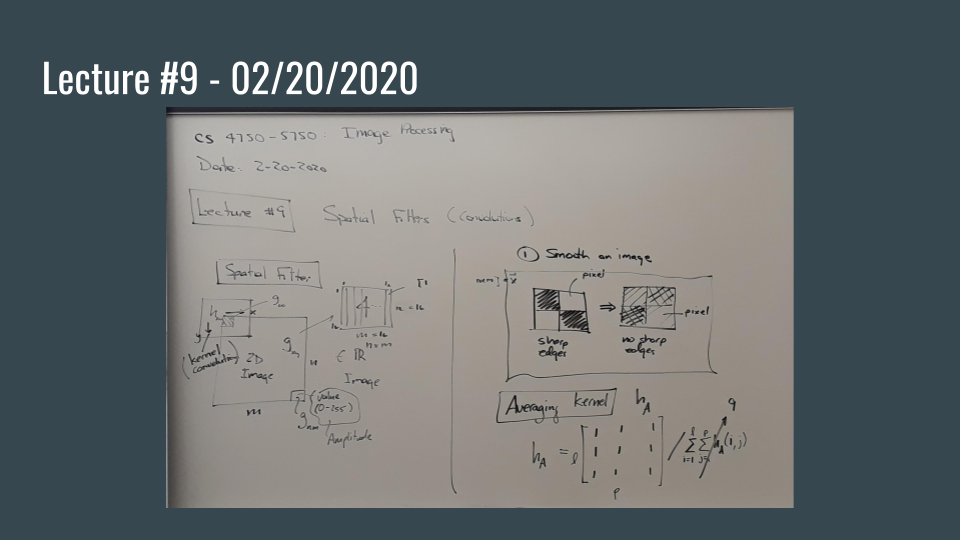 Lecture #9 - 02/20/2020
CS 4750-5750: Image Processing
Date: 2-20-2020
Lecture #9
Spatial Filters (Convolutions)
Spatial Filter
g
h
x
y
(kernel convolution)
2D
Image
g
n
m
m = k
n = m
∈ ℝ
Image
value
(0-255)
g nm
Amplitude
① Smooth an image
pixel
⇒
pixel
sharp
edges
no sharp
edges
Averaging kernel h_A
9
h_A = l [ 1 1 1
1 1 1
1 1 1 ] / l Σ i=1 p Σ j=1 h_A(i,j)
p